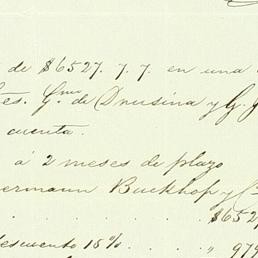 de $6527. 7. 7. en una
tes. Gmo de Drusina y G. J
cuenta.
á 2 meses de plazo
ermann Buckhop y Ca
. . . . . . $652
descuento 15% . . . . " 979